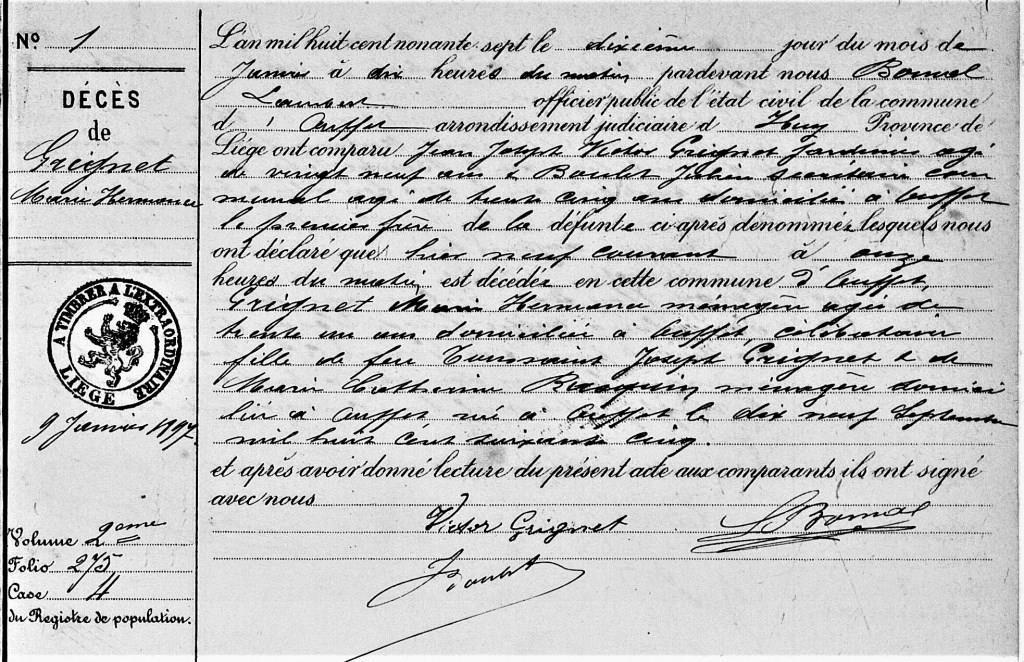 N° 1
DÉCÈS
de
Grignet
Marie Hermance
A TIMBRER A L'EXTRAORDINAIRE
LIÈGE
9 Janvier 1897
Volume 2eme
Folio 275
Case 4
du Registre de population.
L'an mil huit cent nonante sept le dixième jour du mois de
Janvier à dix heures du matin pardevant nous
Lambert officier public de l'état civil de la commune
d'Ouffet arrondissement judiciaire d Huy Province de
Liège ont comparu Jean Joseph Victor Grignet Jardinier agé
de vingt neuf ans & Boulet Julien secrétaire com
munal agé de trente cinq ans domiciliés à Ouffet
le premier frère de la défunte ci-après dénommée lesquels nous
ont déclaré que hier neuf courant à onze
heures du matin est décédée en cette commune d'Ouffet,
Grignet Marie Hermance ménagère agée de
trente un ans domiciliée à Ouffet, célibataire
fille de feu Toussaint Joseph Grignet & de
Marie Catherine ménagère domici
liée à Ouffet née à Ouffet le dix neuf Septembre
mil huit cent soixante cinq.
et après avoir donné lecture du présent acte aux comparants ils ont signé
avec nous
Victor Grignet
J Boulet